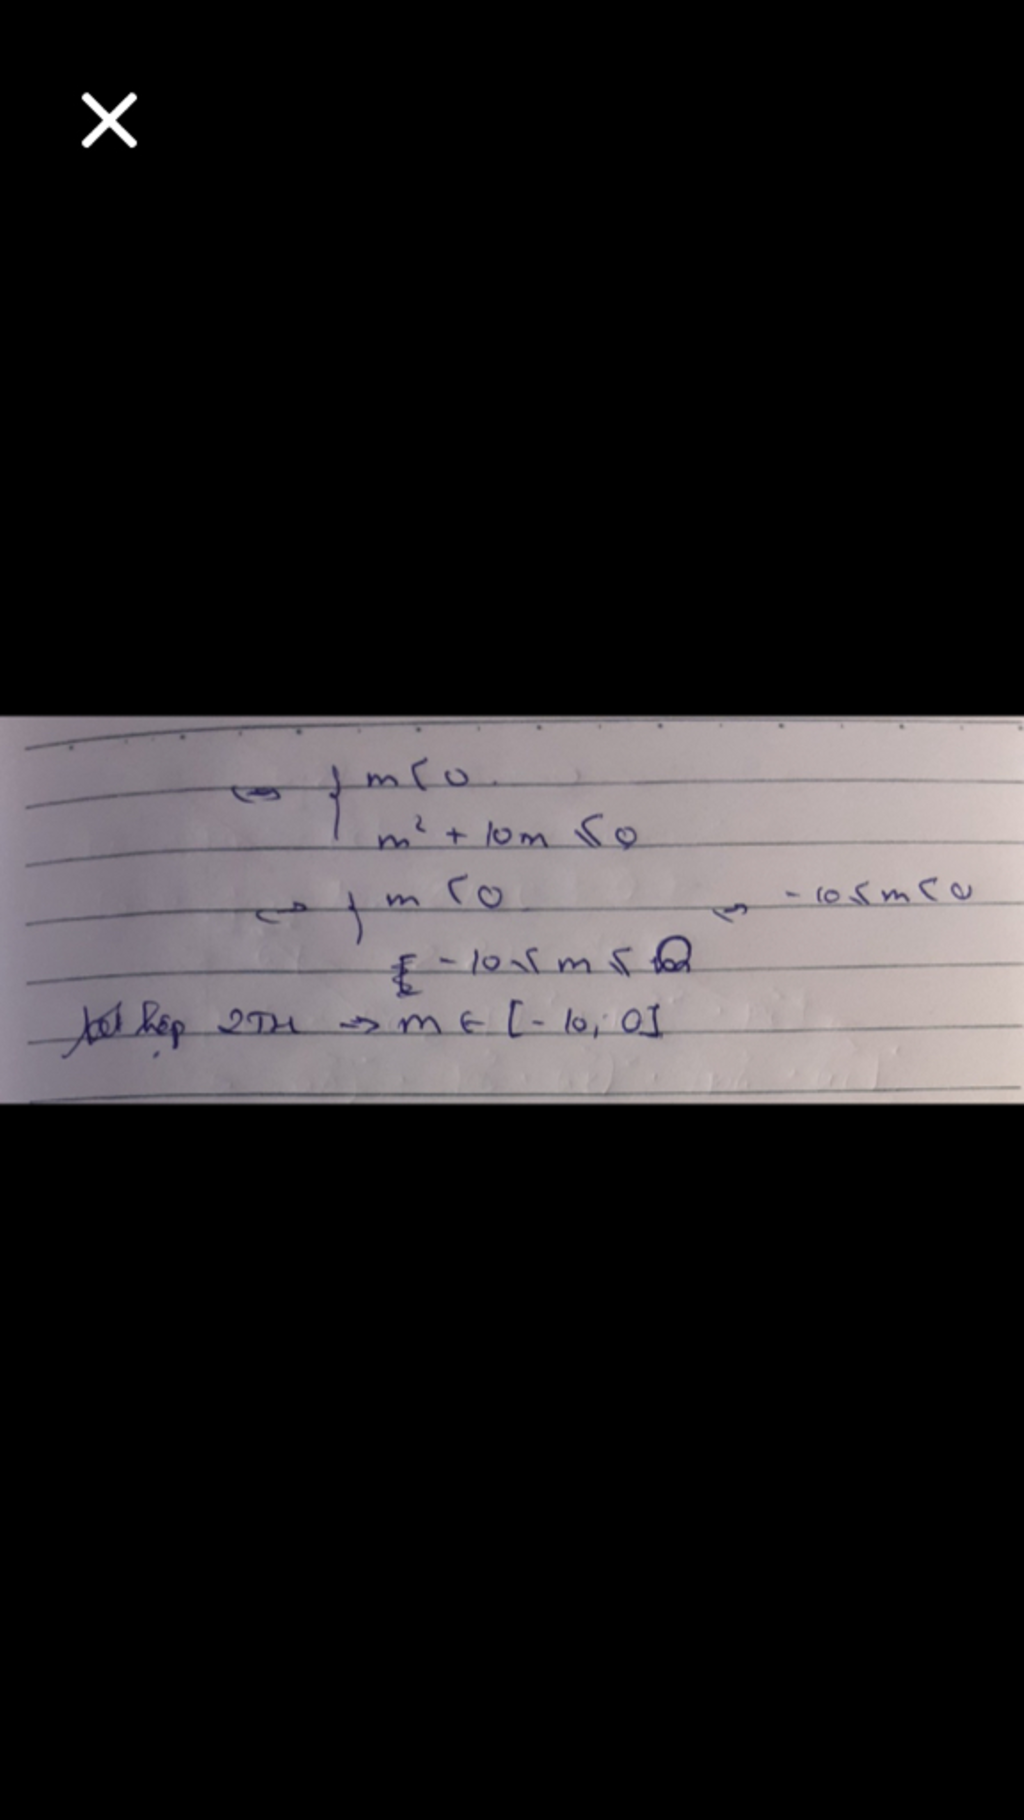 ⇔ { m < 0
m² + 10m ≤ 0
⇔ { m < 0
-10 ≤ m ≤ 0 ⇔ -10 ≤ m < 0
kết hợp 2TH → m ∈ [-10; 0]